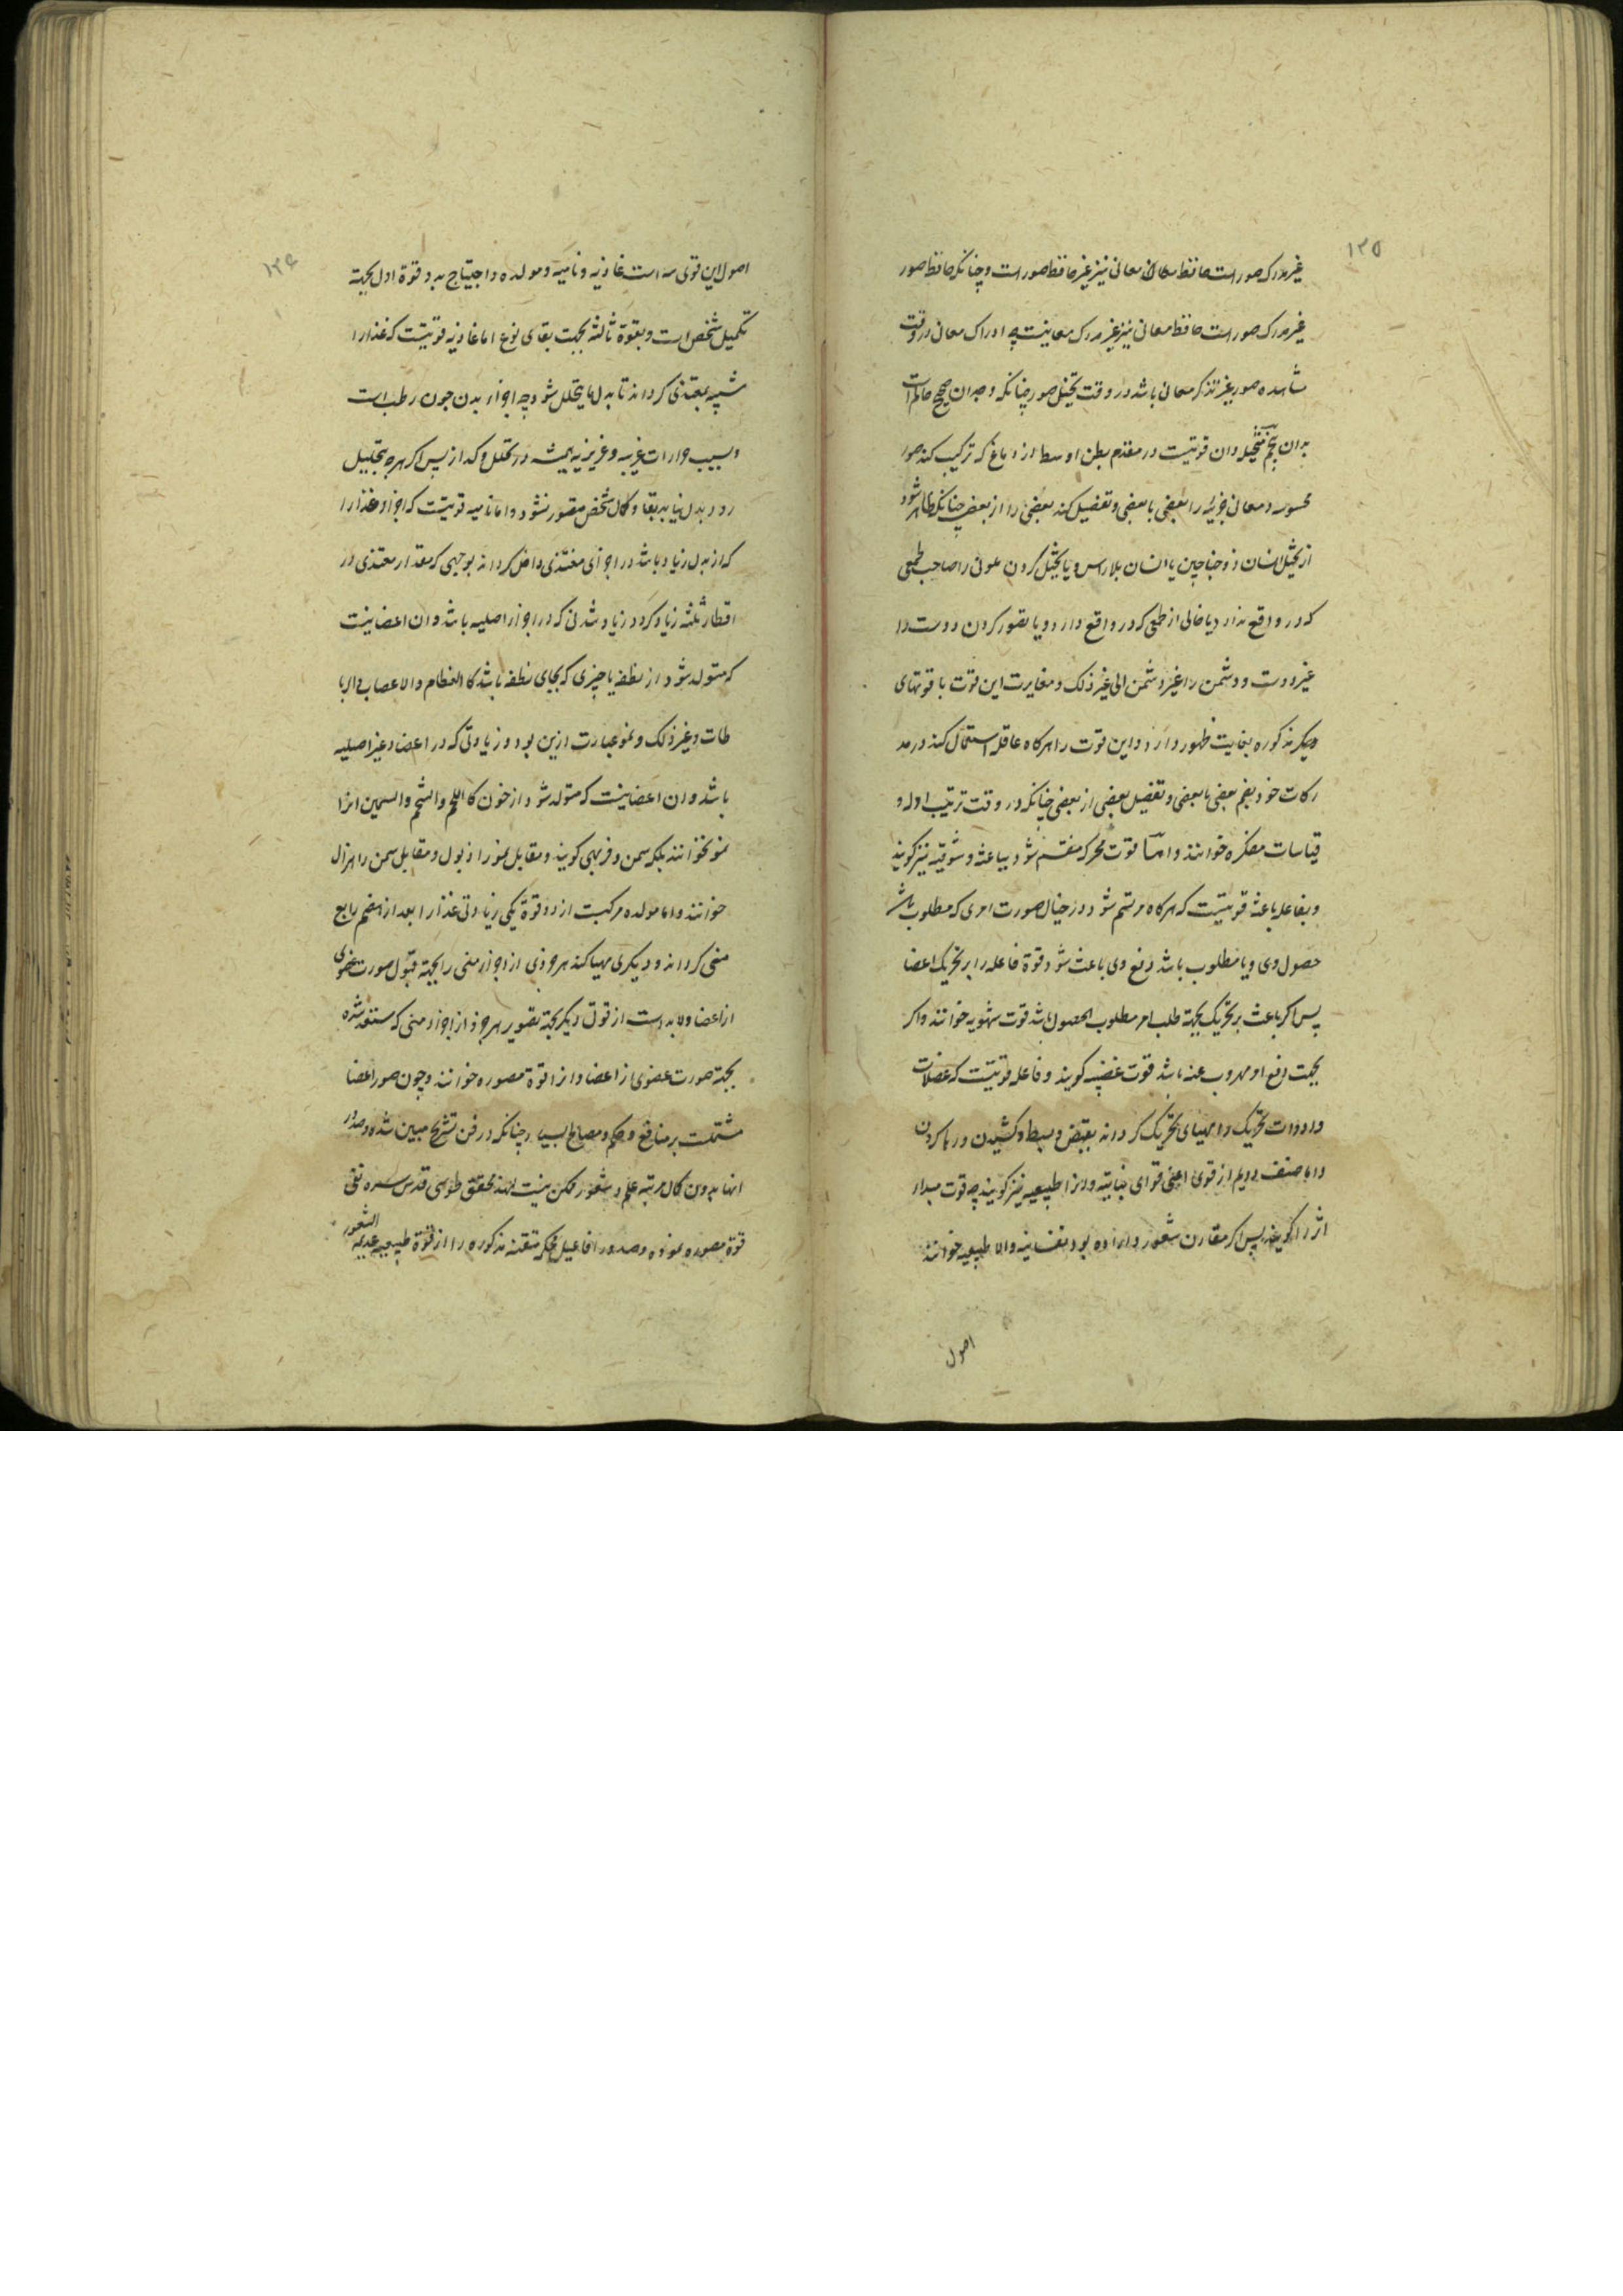 ۱۳۵
غیر مدرک صور است حافظ معانی نیز غیر حافظ صور است و چنانکه حافظ صور
غیر مدرک صور است حافظ معانی نیز غیر مدرک معانیست چه ادراک معانی در وقت
مشاهده صور غیر تذکر معانی باشد در وقت تخیل صور چنانکه وجدان صحیح حاکم است
بدان پنجم متخیله و ان قوتیست در مقدم بطن اوسط از دماغ که ترکیب کند صور
محسوسه و معانی جزئیه را بعضی با بعضی و تفصیل کند بعضی را از بعضی چنانکه ظاهر شود
از تخیل انسان ذو جناحین یا انسان بلا راس و یا تخیل کردن ملونی را صاحب طعمی
که در واقع ندارد یا خالی از طعمی که در واقع دارد و یا تصور کردن دوست را
غیر دوست و دشمن را غیر دشمن الی غیر ذلک و مغایرت این قوت با قوتهای
دیگر مذکوره بغایت ظهور دارد و این قوت را هرکاه عاقله استعمال کند در مد
رکات خود بضم بعضی با بعضی و تفصیل بعضی از بعضی چنانکه در وقت ترتیب ادله و
قیاسات مفکره خوانند و امّا قوت محرکه منقسم شود بباعثه و شوقیه نیز کویند
و بفاعله باعثه قوتیست که هرکاه مرتسم شود در خیال صورت امری که مطلوب باشد
حصول وی و یا مطلوب باشد دفع وی باعث شود قوة فاعله را بر تحریک اعضا
پس اکر باعث بر تحریک بجهة طلب امر مطلوب الحصول باشد قوت شهویه خوانند و اکر
بجهت دفع او مهروب عنه باشد قوت غضبیه کویند و فاعله قوتیست که عضلات
و ادوات تحریک را مهیای تحریک کرداند بقبض و بسط و کشیدن و رها کردن
و اما صنف دویم از قوی اعنی قوای نباتیه و انرا طبیعیه نیز کویند چه قوت مبداء
اثر را کویند پس اکر مقارن شعور و اراده بود نفسانیه و الا طبیعیه خوانند
اصول
۱۳۶
اصول این قوی سه است غاذیه و نامیه و مولده و احتیاج بدو قوة اول بجهة
تکمیل شخص است و بقوة ثالثه بجهت بقای نوع اما غاذیه قوتیست که غذا را
شبیه بمغتذی کرداند تا بدل ما یتحلل شود چه اجزاء بدن چون رطب است
و بسبب حرارات غریبه و غریزیه همیشه در تحلل و کداز پس اکر هرچه بتحلیل
رود بدل نیابد بقاء و کمال شخص متصور نشود و اما نامیه قوتیست که اجزاء غذا را
که از بدل زیاد باشد در اجزای مغتذی داخل کرداند بوجهی که مقدار مغتذی در
اقطار ثلثه زیاد کردد زیاد شدنی که در اجزاء اصلیه باشد و ان اعضائیست
که متولد شود از نطفه یا چیزی که بجای نطفه باشد کالعظام و الاعصاب و الربا
طات و غیر ذلک و نمو عبارت ازین بود و زیادتی که در اعضاء غیر اصلیه
باشد و ان اعضائیست که متولد شود از خون کاللحم و الشحم و السمین انرا
نمو نخوانند بلکه سمن و فربهی کویند و مقابل نمو را ذبول و مقابل سمن را هزال
خوانند و اما مولده مرکبست از دو قوة یکی زیادتی غذا را بعد از هضم رابع
منی کرداند و دیکری مهیا کند هر جزوی از اجزاء منی را بجهة قبول صورت عضوی
از اعضا و لابد است از قوتی دیکر بجهة تصویر هر جزء از اجزاء منی که مستعد شده
بجهة صورت عضوی از اعضا و انرا قوة مصوره خوانند و چون صور اعضا
مشتملست بر منافع و حکم و مصالح بسیار چنانکه در فن تشریح مبین شده و صدور
انها بدون کمال مرتبه علم و شعور ممکن نیست لهذا محقق طوسی قدس سره نفی
قوة مصوره نموده و صدور افاعیل محکمه متقنه مذکوره را از قوة طبیعیه عدیمه الشعور